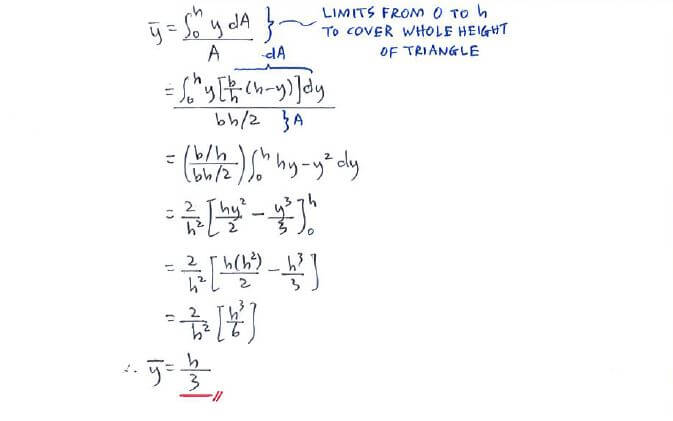 ȳ = ∫₀ʰ y dA / A } LIMITS FROM 0 TO h
TO COVER WHOLE HEIGHT
OF TRIANGLE
dA
= ∫₀ʰ y[b/h (h-y)]dy / bh/2 }A
= ((b/h)/(bh/2)) ∫₀ʰ hy - y² dy
= 2/h² [hy²/2 - y³/3]₀ʰ
= 2/h² [h(h²)/2 - h³/3]
= 2/h² [h³/6]
∴ ȳ = h/3